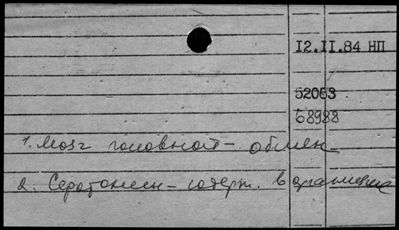 12.II.84 НП
52063
68988
1. Мозг головной - обмен
2. Серотонин - содерж. в организме